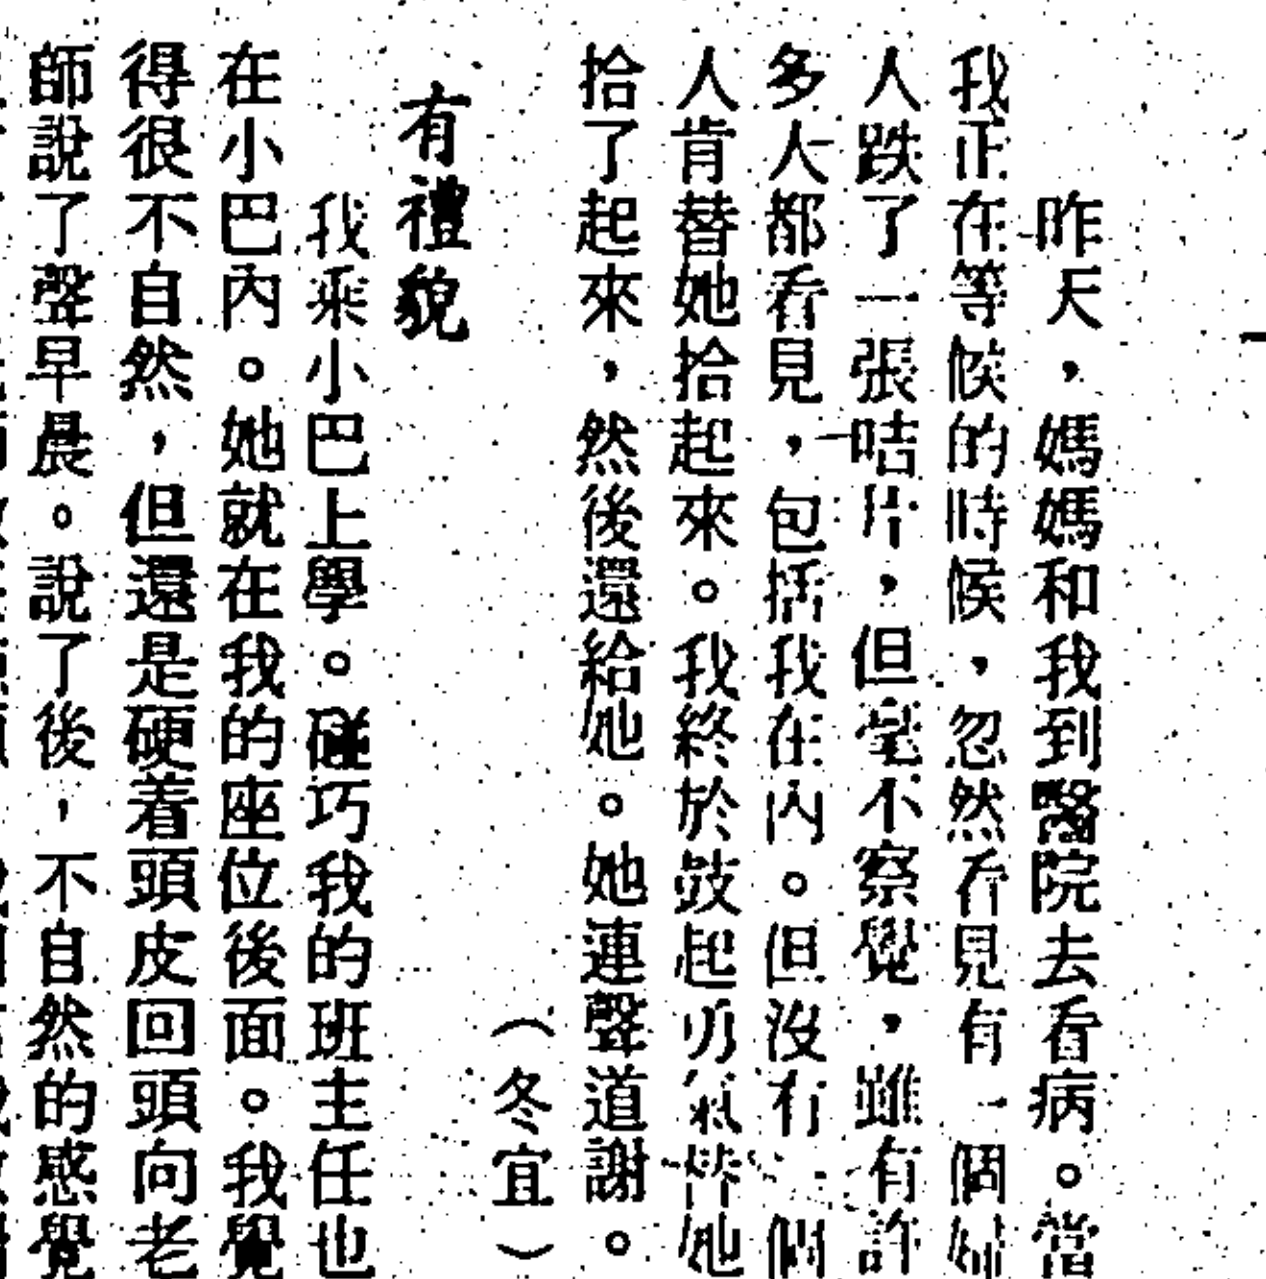 昨天，媽媽和我到醫院去看病。當
我正在等候的時候，忽然看見有一個婦
人跌了一張咭片，但毫不察覺，雖有許
多人都看見，包括我在內。但沒有一個
人肯替她拾起來。我終於鼓起勇氣替她
拾了起來，然後還給她。她連聲道謝。
（冬宜）
有禮貌
我乘小巴上學。碰巧我的班主任也
在小巴內。她就在我的座位後面。我覺
得很不自然，但還是硬着頭皮回頭向老
師說了聲早晨。說了後，不自然的感覺